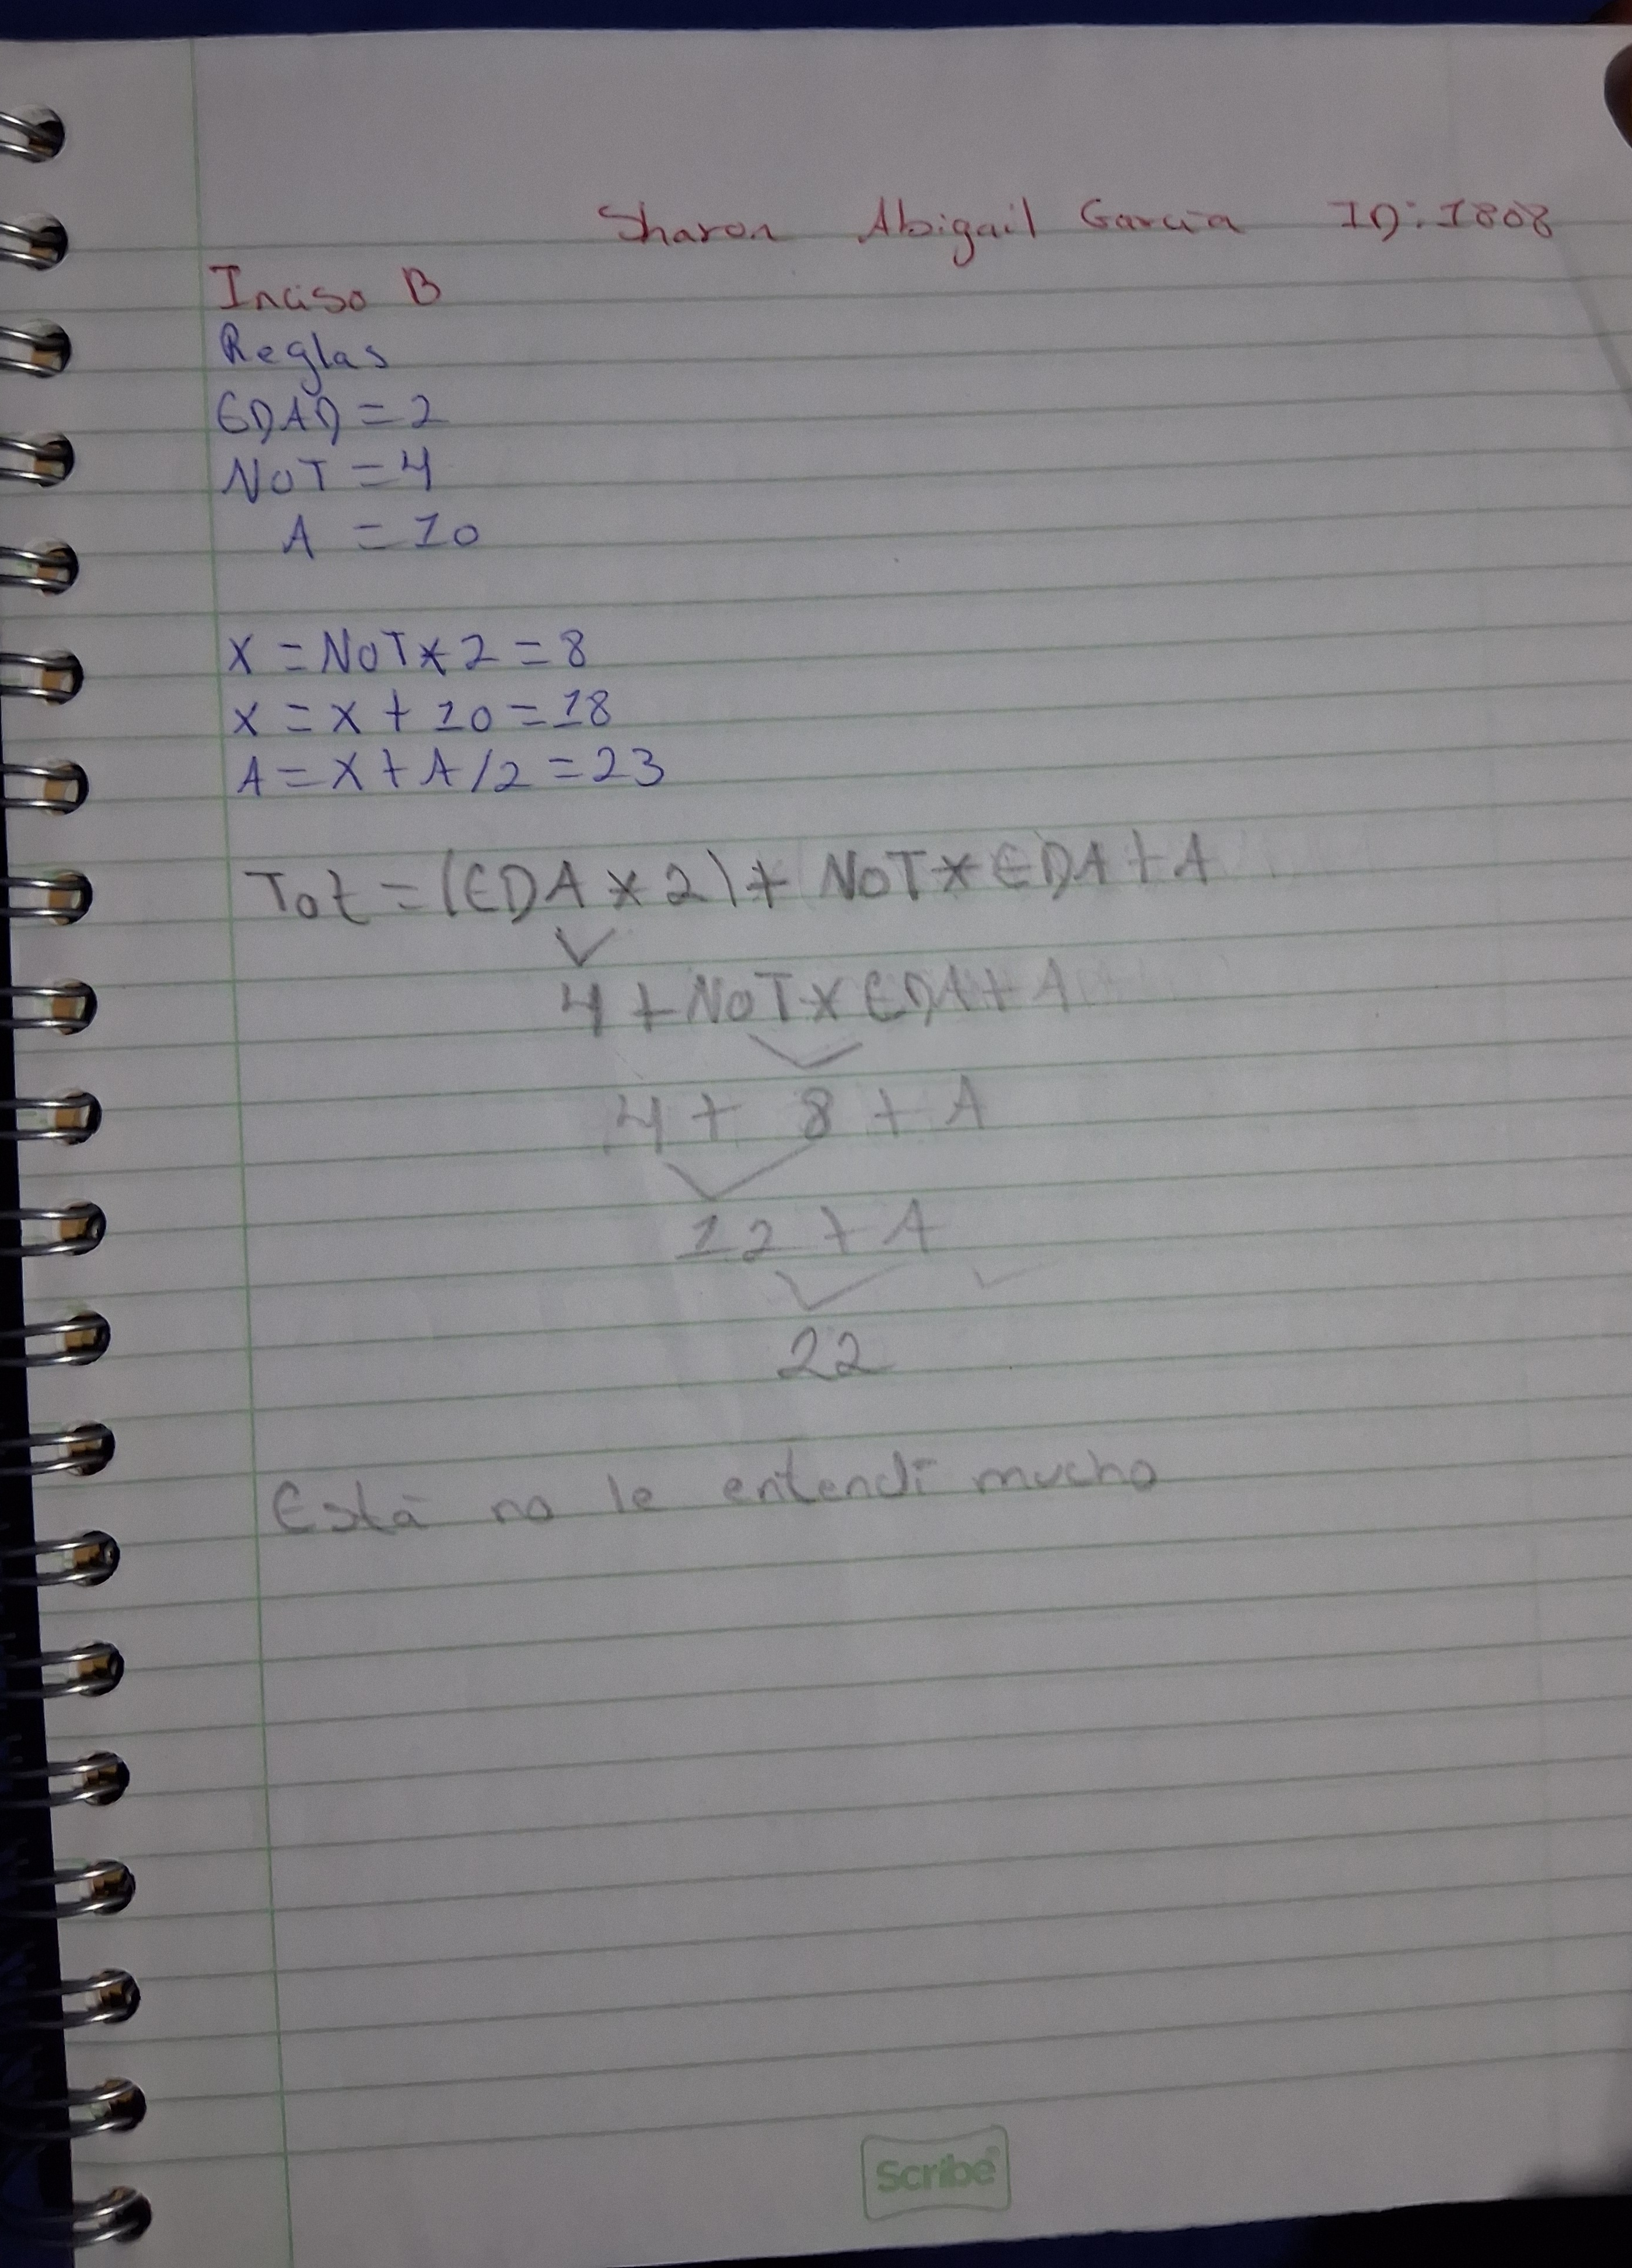 Sharon Abigail Garcia ID: 1808
Inciso B
Reglas
EDAD = 2
NOT = 4
A = 10
X = NOT * 2 = 8
X = X + 10 = 18
A = X + A / 2 = 23
Tot = (EDA * 2) + NOT * EDA + A
4 + NOT * EDA + A
4 + 8 + A
12 + A
22
Está no le entendí mucho
Scribe